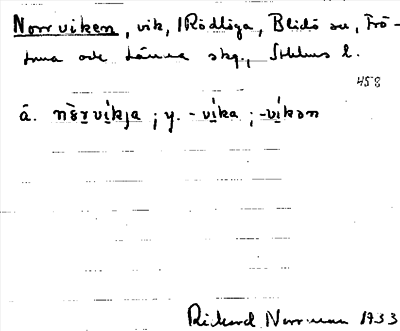 Norrviken, vik, i Rödlöga, Blidö sn, Frö-
tuna och Länna skg., Sthlms l.
458
ä. nèrvíkja; y. -víka; -víkən
Rickard Norrman 1933